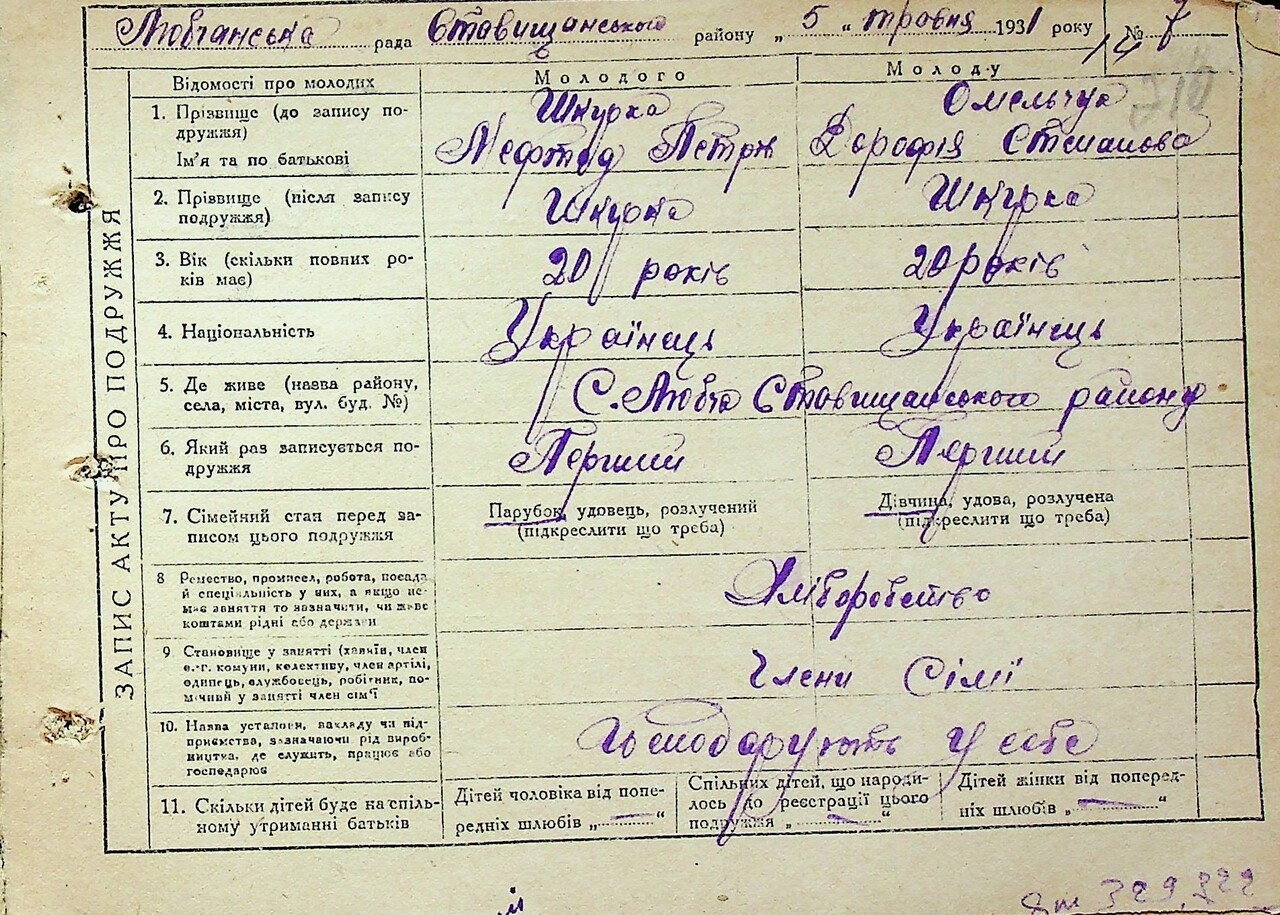 Любчанська рада Ставищанського району „ 5 “ травня 1931 року № 7
14
710
ЗАПИС АКТУ ПРО ПОДРУЖЖЯ
Відомості про молодих
Молодого
Молоду
1. Прізвище (до запису по-
дружжя)
Ім'я та по батькові
Шкурка
Мефтод Петрів
Омельчук
Дорофія Степанова
2. Прізвище (після запису
подружжя)
Шкурка
Шкурка
3. Вік (скільки повних ро-
ків має)
20 років
20 років
4. Національність
Українець
Українець
5. Де живе (назва району,
села, міста, вул. буд. №)
С. Любча Ставищанського району
6. Який раз записується по-
дружжя
Перший
Перший
7. Сімейний стан перед за-
писом цього подружжя
Парубок, удовець, розлучений
(підкреслити що треба)
Дівчина, удова, розлучена
(підкреслити що треба)
8 Ремество, промисел, робота, посада
й спеціяльність у них, а якщо не-
має заняття то зазначити, чи живе
коштами рідні або держави
Хліборобство
9 Становище у занятті (хазяїн, член
с.-г. комуни, колективу, член артілі,
одинець, службовець, робітник, по-
мічний у занятті член сім'ї
Члени Сімї
10. Назва установи, закладу чи під-
приємства, зазначаючи рід вироб-
ництва, де служить, працює або
господарює
Господарують у себе
11. Скільки дітей буде на спіль-
ному утриманні батьків
Дітей чоловіка від попе-
редніх шлюбів „ — “
Спільних дітей, що народи-
лось до реєстрації цього
подружжя „ — “
Дітей жінки від поперед-
ніх шлюбів „ — “
329,322